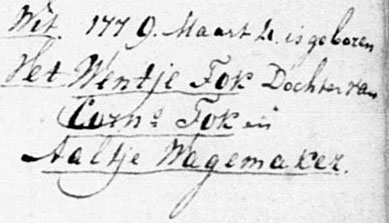 Wit. 1779. Maart 4. is geboren
Wentje Fok Dochter van
Corns Fok en
Aaltje Wagemaker.